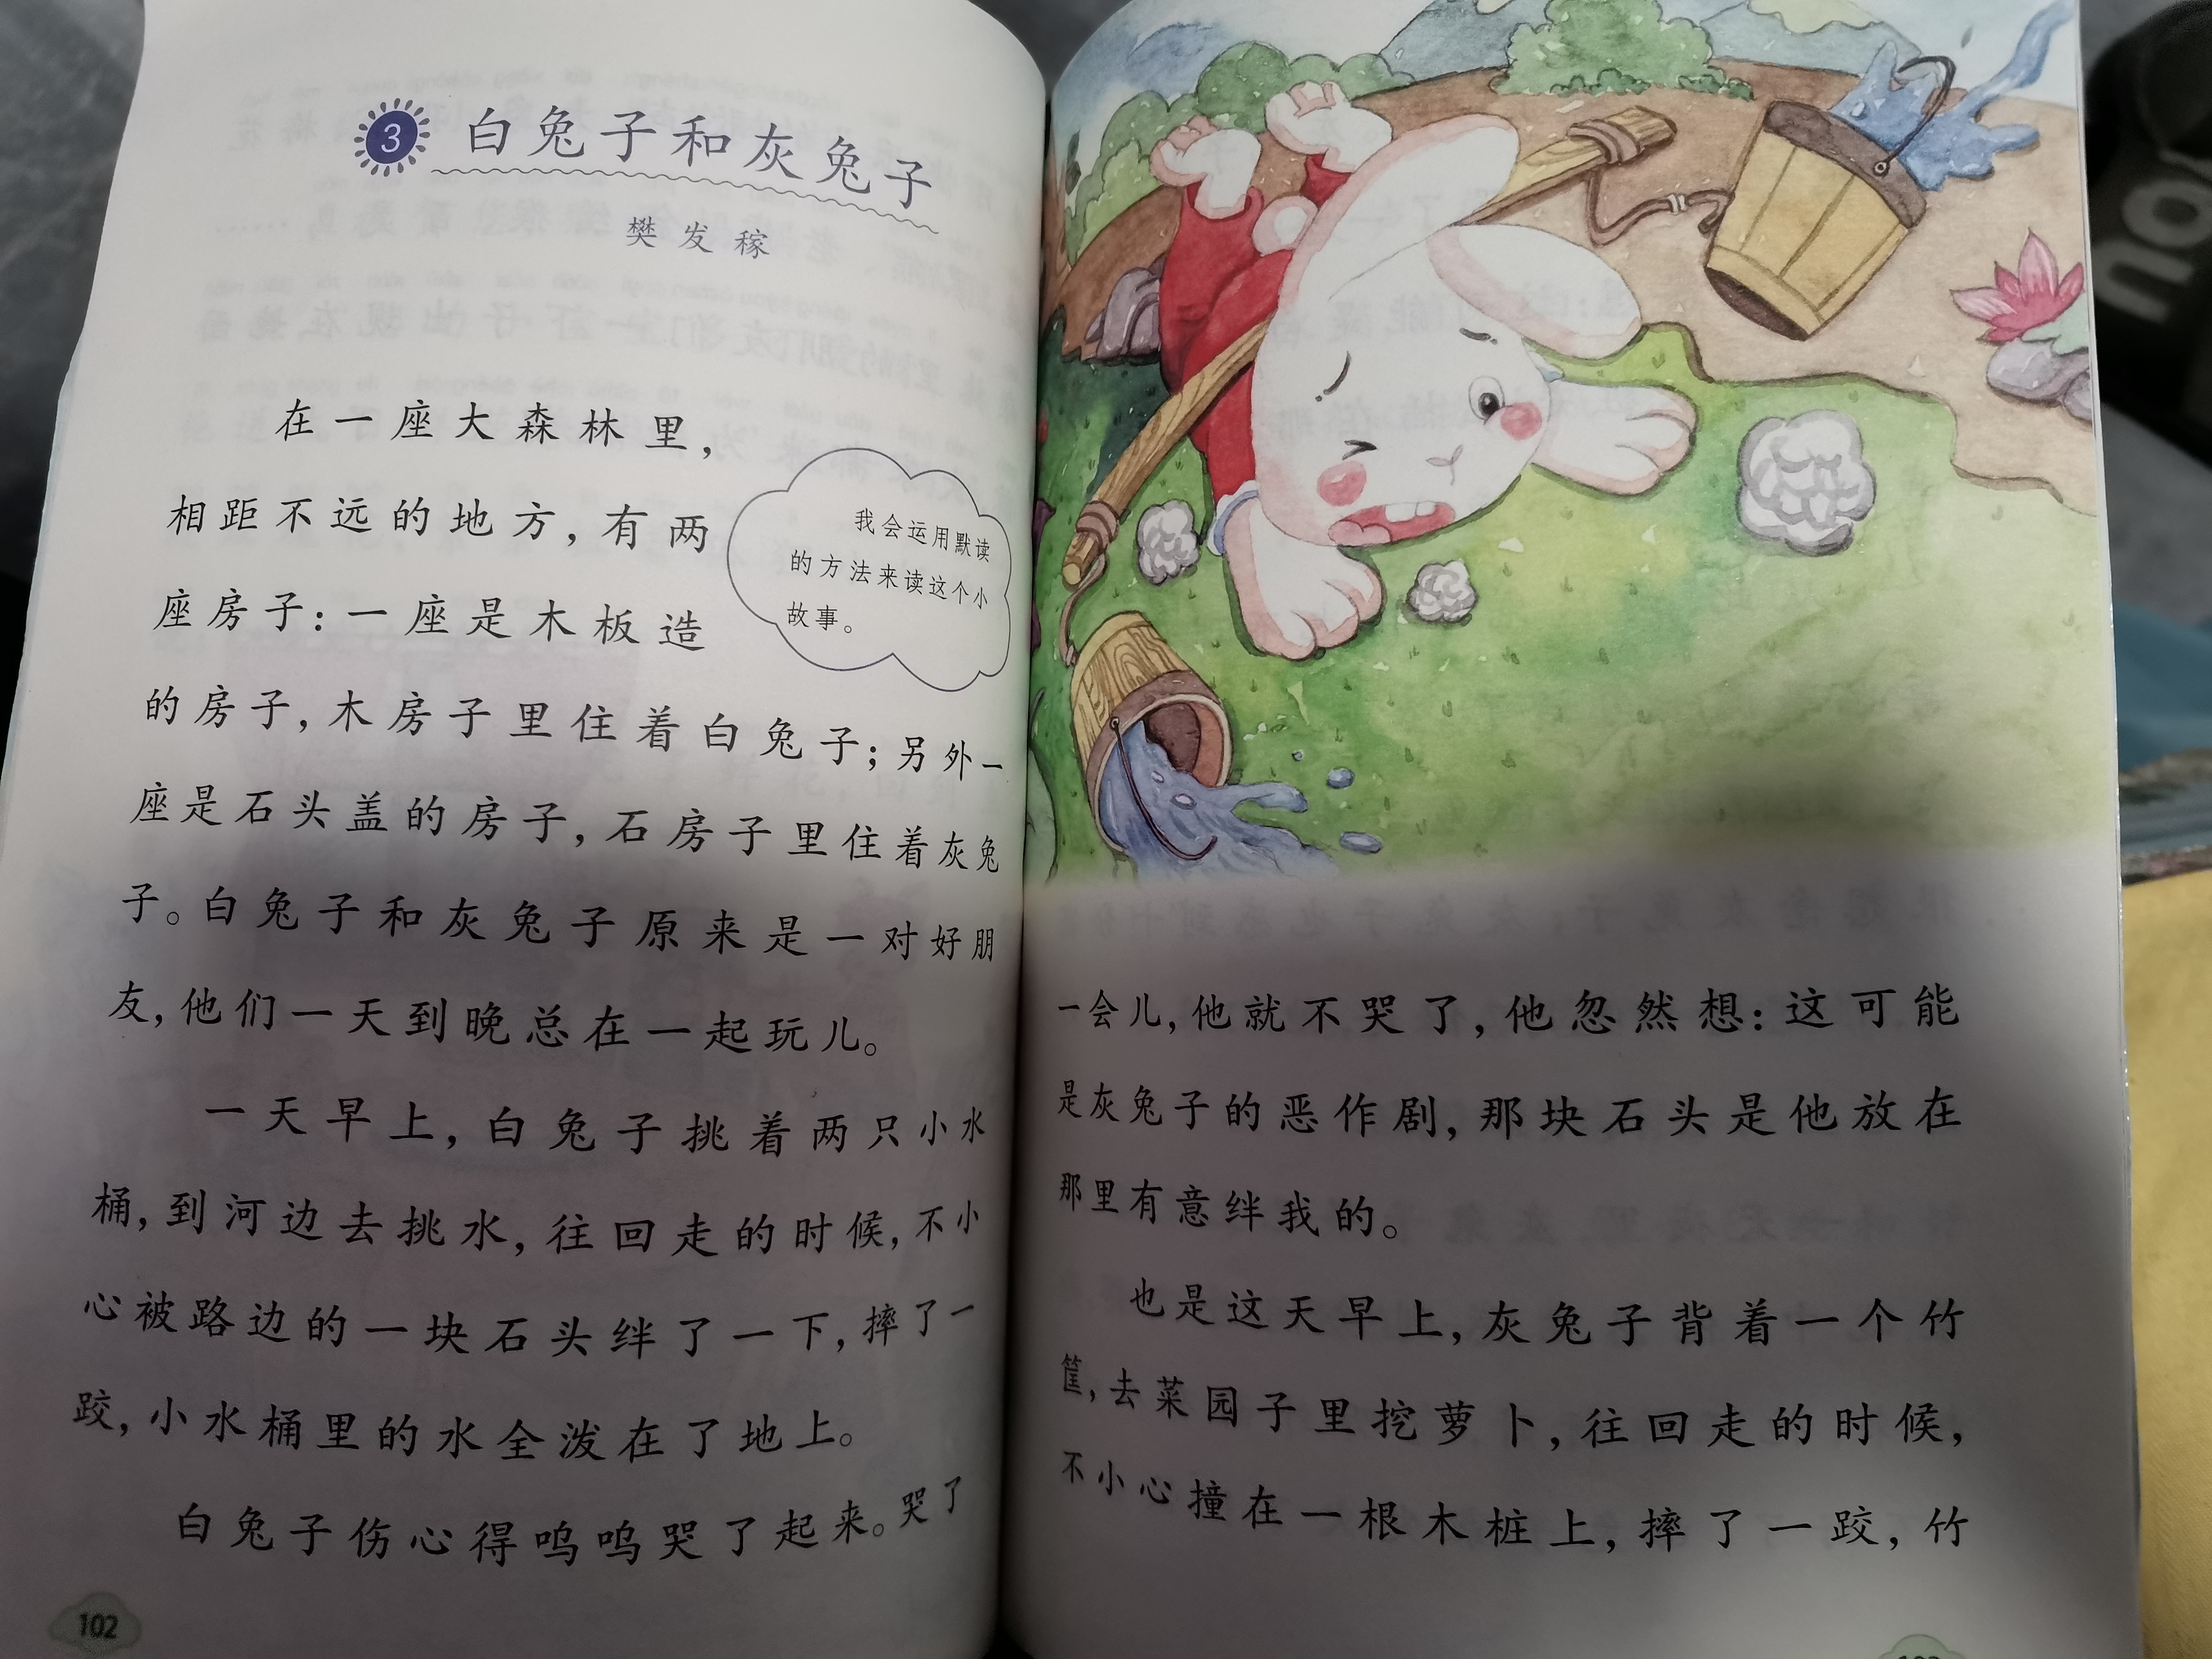 3 白兔子和灰兔子
樊发稼
在一座大森林里，
相距不远的地方，有两
座房子：一座是木板造
的房子，木房子里住着白兔子；另外一
座是石头盖的房子，石房子里住着灰兔
子。白兔子和灰兔子原来是一对好朋
友，他们一天到晚总在一起玩儿。
一天早上，白兔子挑着两只小水
桶，到河边去挑水，往回走的时候，不小
心被路边的一块石头绊了一下，摔了一
跤，小水桶里的水全泼在了地上。
白兔子伤心得呜呜哭了起来。哭了
我会运用默读
的方法来读这个小
故事。
102
一会儿，他就不哭了，他忽然想：这可能
是灰兔子的恶作剧，那块石头是他放在
那里有意绊我的。
也是这天早上，灰兔子背着一个竹
筐，去菜园子里挖萝卜，往回走的时候，
不小心撞在一根木桩上，摔了一跤，竹